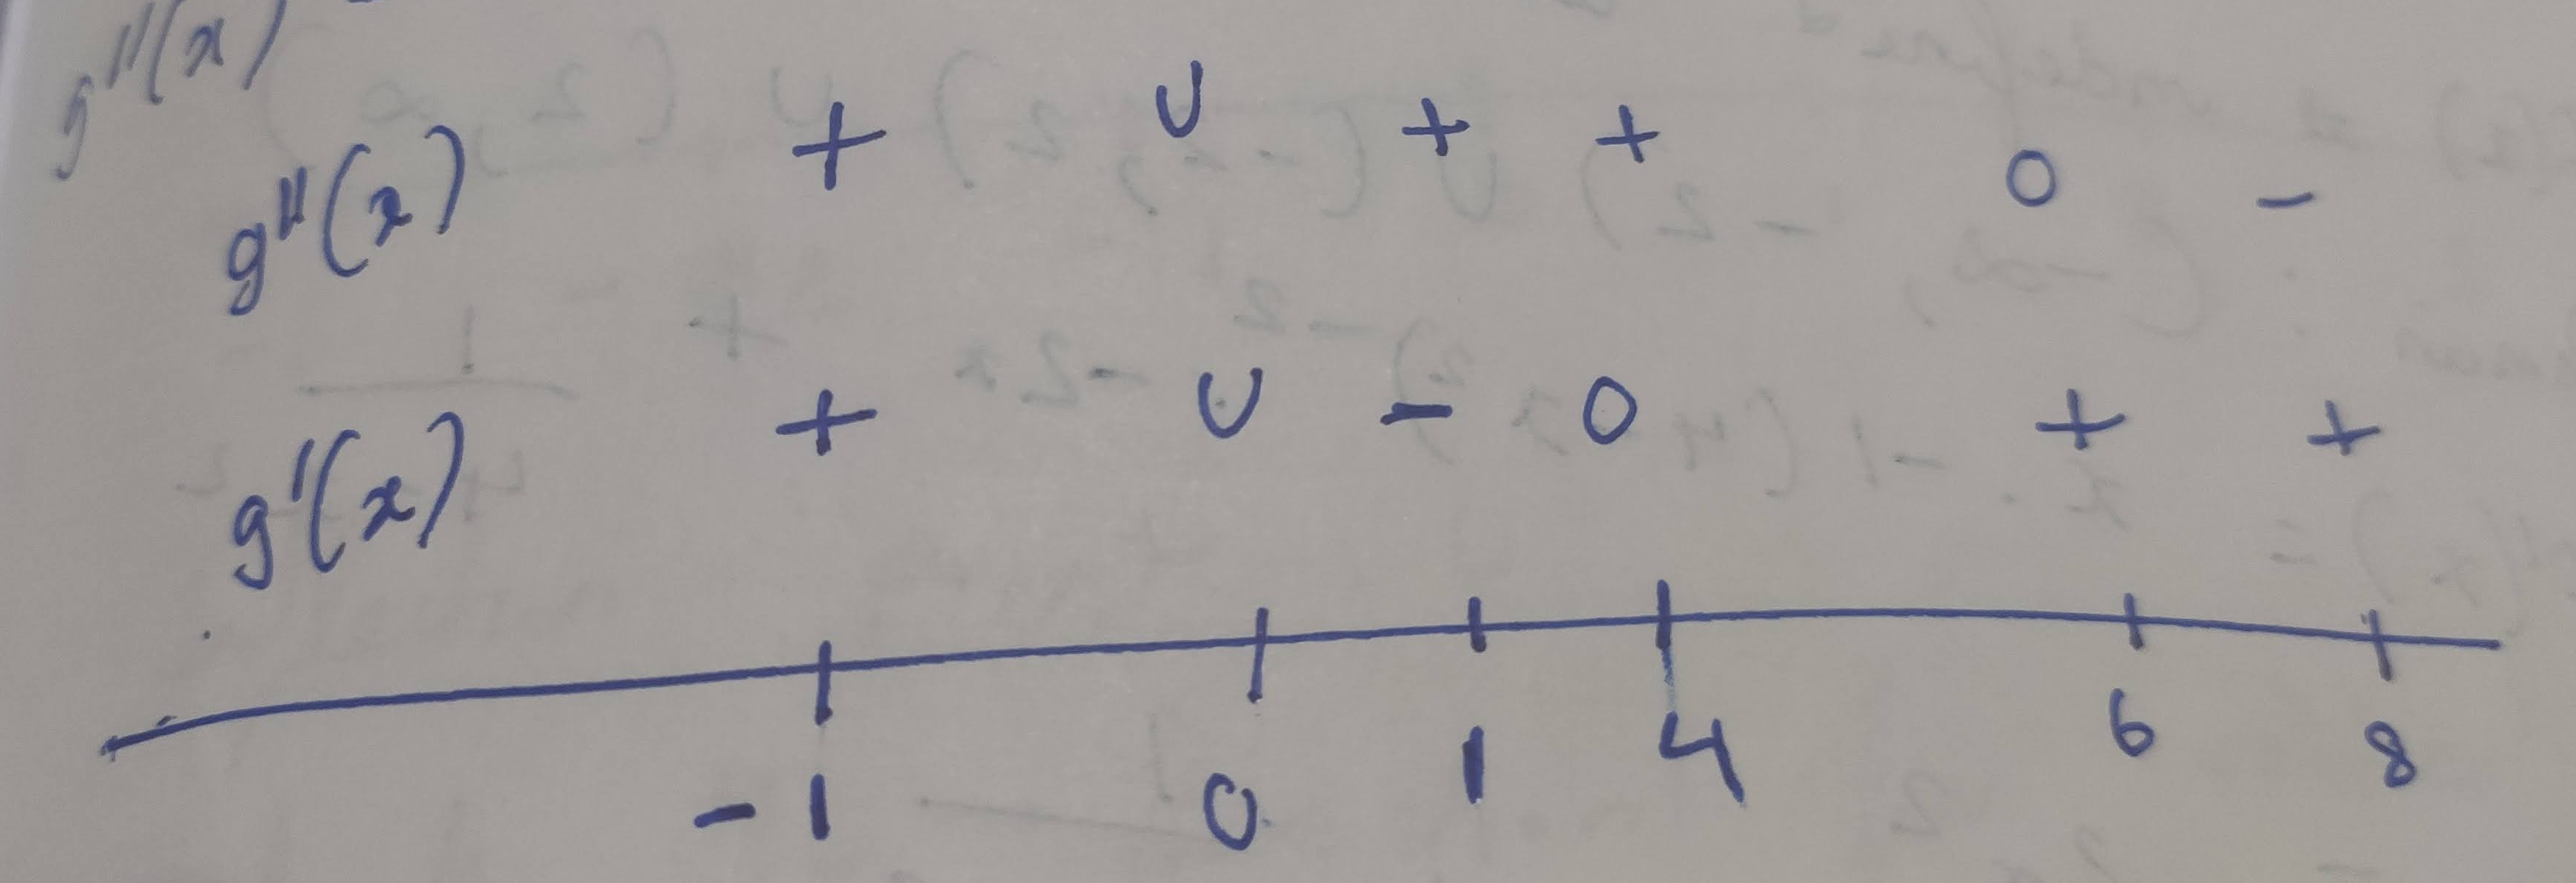 g''(x)
g''(x) + U + + 0 -
g'(x) + U - 0 + +
-1 0 1 4 6 8